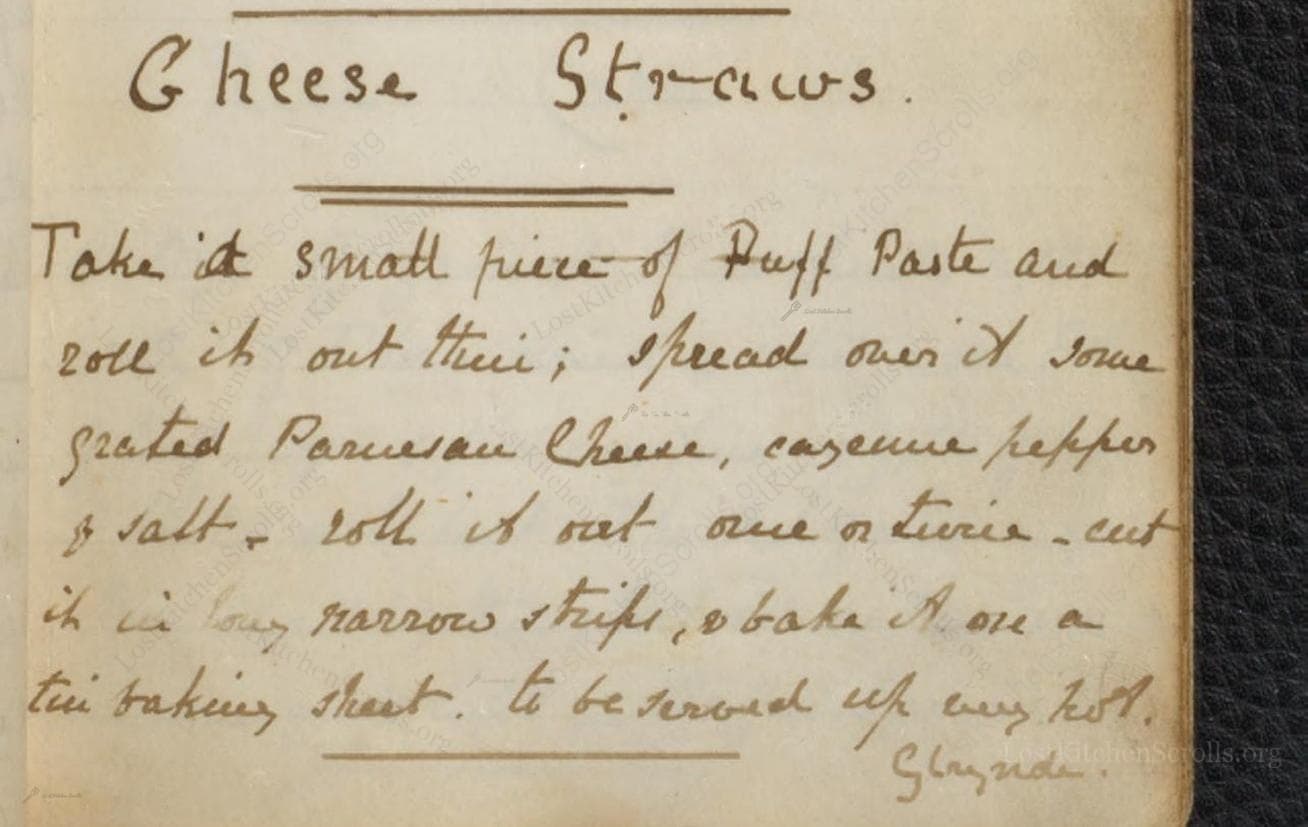 Cheese Straws.
Take a small piece of Puff Paste and
roll it out thin; spread over it some
grated Parmesan Cheese, cayenne pepper
& salt - roll it out once or twice - cut
it in long narrow strips, & bake it on a
tin baking sheet. to be served up very hot.
Glynde.
LostKitchenScrolls.org